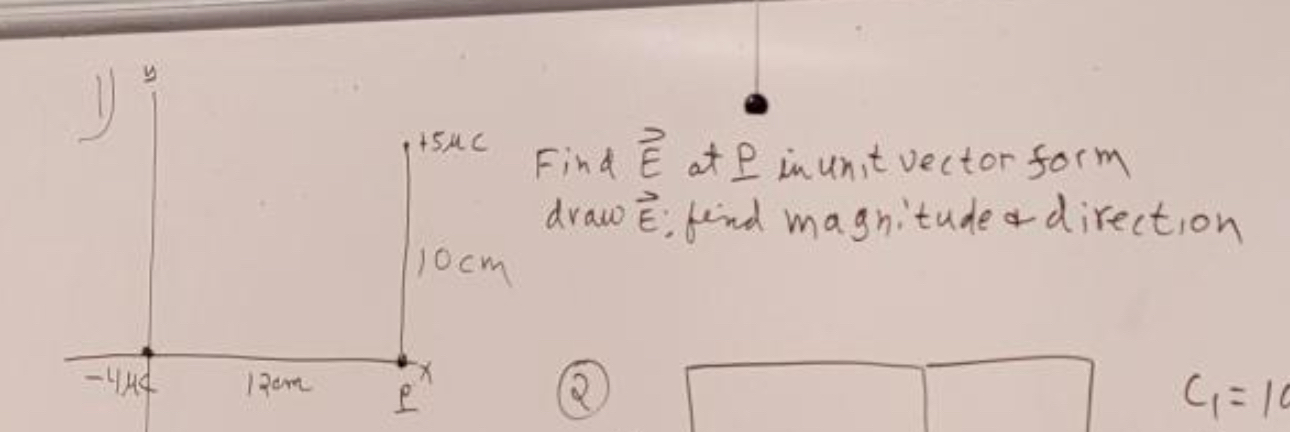 1)
y
+5μC
Find E⃗ at P in unit vector form
draw E⃗; find magnitude & direction
10cm
-4μC
12cm
P
x
②
C₁ = 10